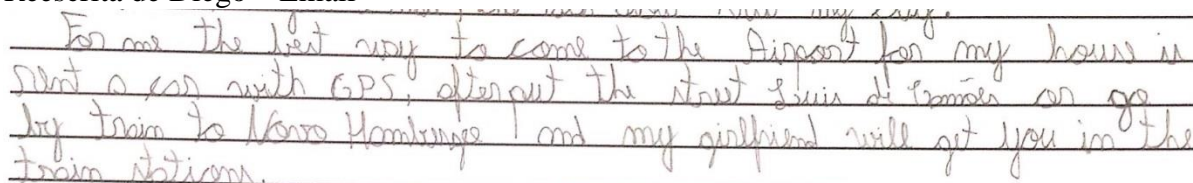 Reescrita de Diego – Email
now my
For me the best way to come to the Airport for my house is
rent a car with GPS, after put the street Luis de Camões or go
by train to Novo Hamburgo and my girlfriend will get you in the
train stations.